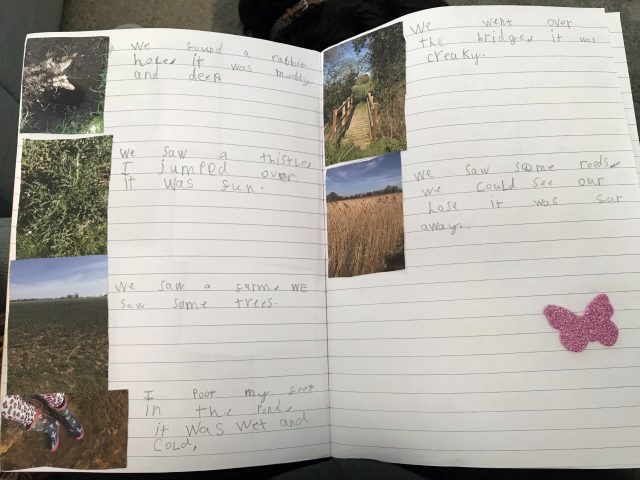 We sound a rabbit
hole, it was muddy
and deep
We saw a thistle,
I jumped over
it was sun.
We saw a sarm, we
saw some trees.
I poot my seet
in the pond,
it was wet and
cold,
We went over
the bridge, it was
creaky.
We saw some reeds,
we could see our
hose it was sar
away.